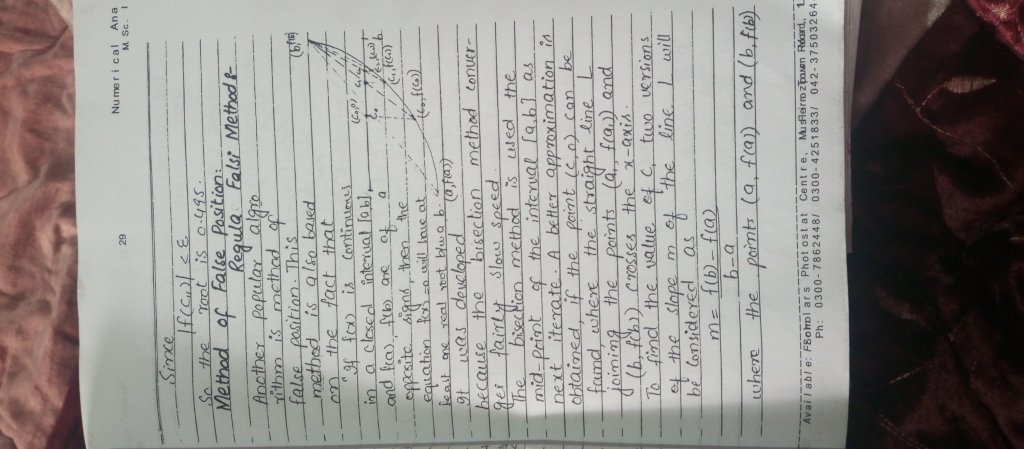 Numerical Ana
M Sc. I
29
Since
|f(cₙ)| < ε
So the root is 0.495.
Method of False Position:
Regula Falsi Method:-
Another popular algro
rithm is method of
false position. This
method is also based
on the fact that
"If f(x) is continuous
in a closed interval [a,b],
and f(a), f(b) are of a
opposite signs, then the
equation f(x)=0 will have at
least one real root b/w a b.
(c₁, f(c₁))
(c₀, f(c₀))
(a, f(a))
It was developed
because the bisection method conver-
ges fairly slow speed.
The bisection method is used the
mid-point of the interval [a,b] as
next iterate. A better approximation is
obtained if the point (c, o) can be
found, where the straight line L
joining the points (a, f(a)) and
(b, f(b)) crosses the x-axis.
To find the value of c, two versions
of the slope m of the line l will
be considered as
m = f(b) - f(a)
b - a
where the points (a, f(a)) and (b, f(b))
Photostat Centre.
Ph: 0300-7862448/ 0300-4251833/ 042-37503264